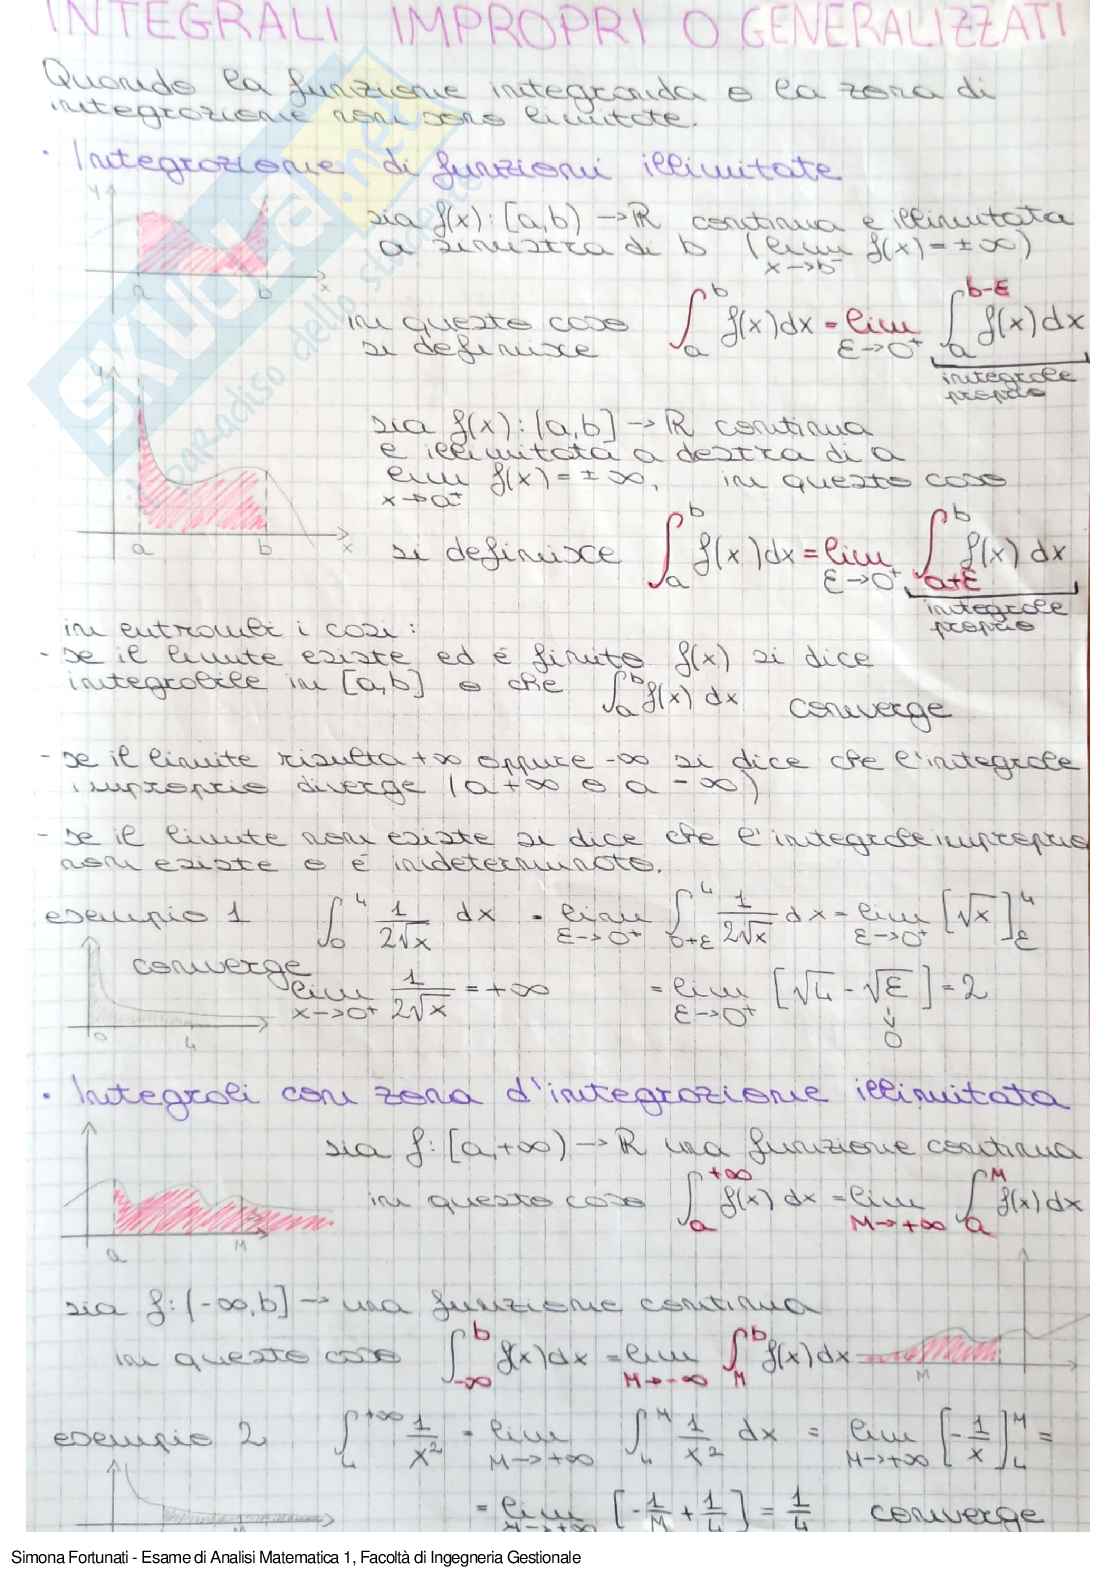 INTEGRALI IMPROPRI O GENERALIZZATI
Quando la funzione integranda o la zona di
integrazione non sono limitate.
• Integrazione di funzioni illimitate
sia f(x): [a,b) → ℝ continua e illimitata
a sinistra di b (lim x→b⁻ f(x) = ±∞)
in questo caso si definisce ∫_a^b f(x)dx = lim ε→0⁺ ∫_a^{b-ε} f(x)dx
integrale proprio
sia f(x): (a,b] → ℝ continua
e illimitata a destra di a
lim x→a⁺ f(x) = ±∞, in questo caso
si definisce ∫_a^b f(x)dx = lim ε→0⁺ ∫_{a+ε}^b f(x) dx
integrale proprio
in entrambi i casi:
- se il limite esiste ed é finito f(x) si dice
integrabile in [a,b] o che ∫_a^b f(x) dx converge
- se il limite risulta +∞ oppure -∞ si dice che l'integrale
improprio diverge (a +∞ o a -∞)
- se il limite non esiste si dice che l'integrale improprio
non esiste o é indeterminato.
esempio 1 ∫_0^4 1/(2√x) dx = lim ε→0⁺ ∫_{0+ε}^4 1/(2√x) dx = lim ε→0⁺ [√x]_ε^4
converge
lim x→0⁺ 1/(2√x) = +∞ = lim ε→0⁺ [√4 - √ε] = 2
↓
0
• Integrali con zona d'integrazione illimitata
sia f: [a,+∞) → ℝ una funzione continua
in questo caso ∫_a^{+∞} f(x) dx = lim M→+∞ ∫_a^M f(x)dx
sia f: (-∞,b] → una funzione continua
in questo caso ∫_{-∞}^b f(x)dx = lim M→-∞ ∫_M^b f(x)dx
esempio 2 ∫_4^{+∞} 1/x² = lim M→+∞ ∫_4^M 1/x² dx = lim M→+∞ [-1/x]_4^M =
= lim M→+∞ [-1/M + 1/4] = 1/4 converge
SKUOLA.net
il paradiso dello studente
Simona Fortunati - Esame di Analisi Matematica 1, Facoltà di Ingegneria Gestionale